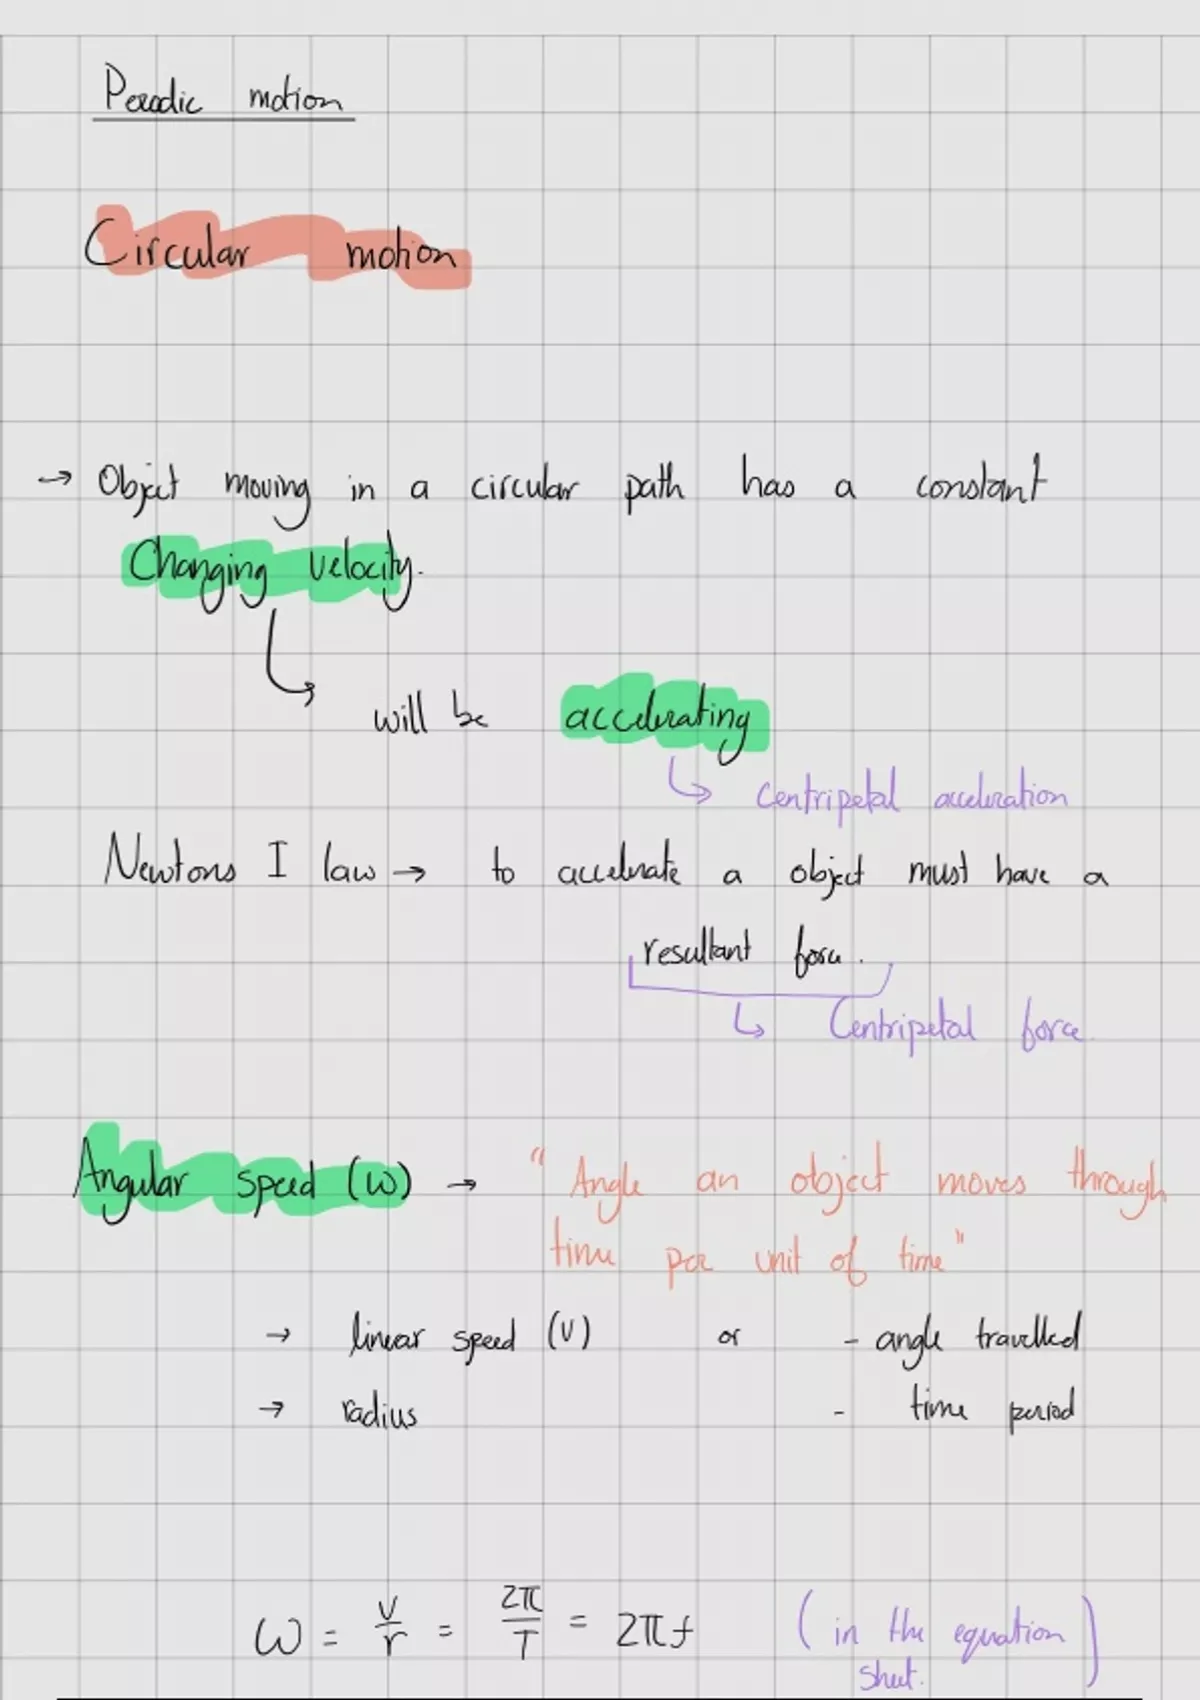 Periodic motion
Circular motion
→ Object moving in a circular path has a constant
Changing velocity.
will be accelerating
↳ Centripetal acceleration
Newtons I law → to accelerate a object must have a
resultant force.
↳ Centripetal force.
Angular speed (ω) → "Angle an object moves through
time per unit of time"
→ linear speed (v) or - angle travelled
→ radius - time period
ω = v/r = 2π/T = 2πf (in the equation
sheet.)